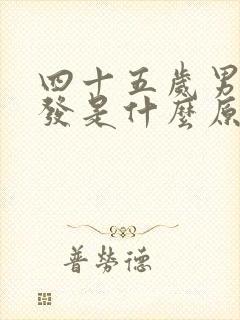 四十五歲男
發是什麼原
普勞德